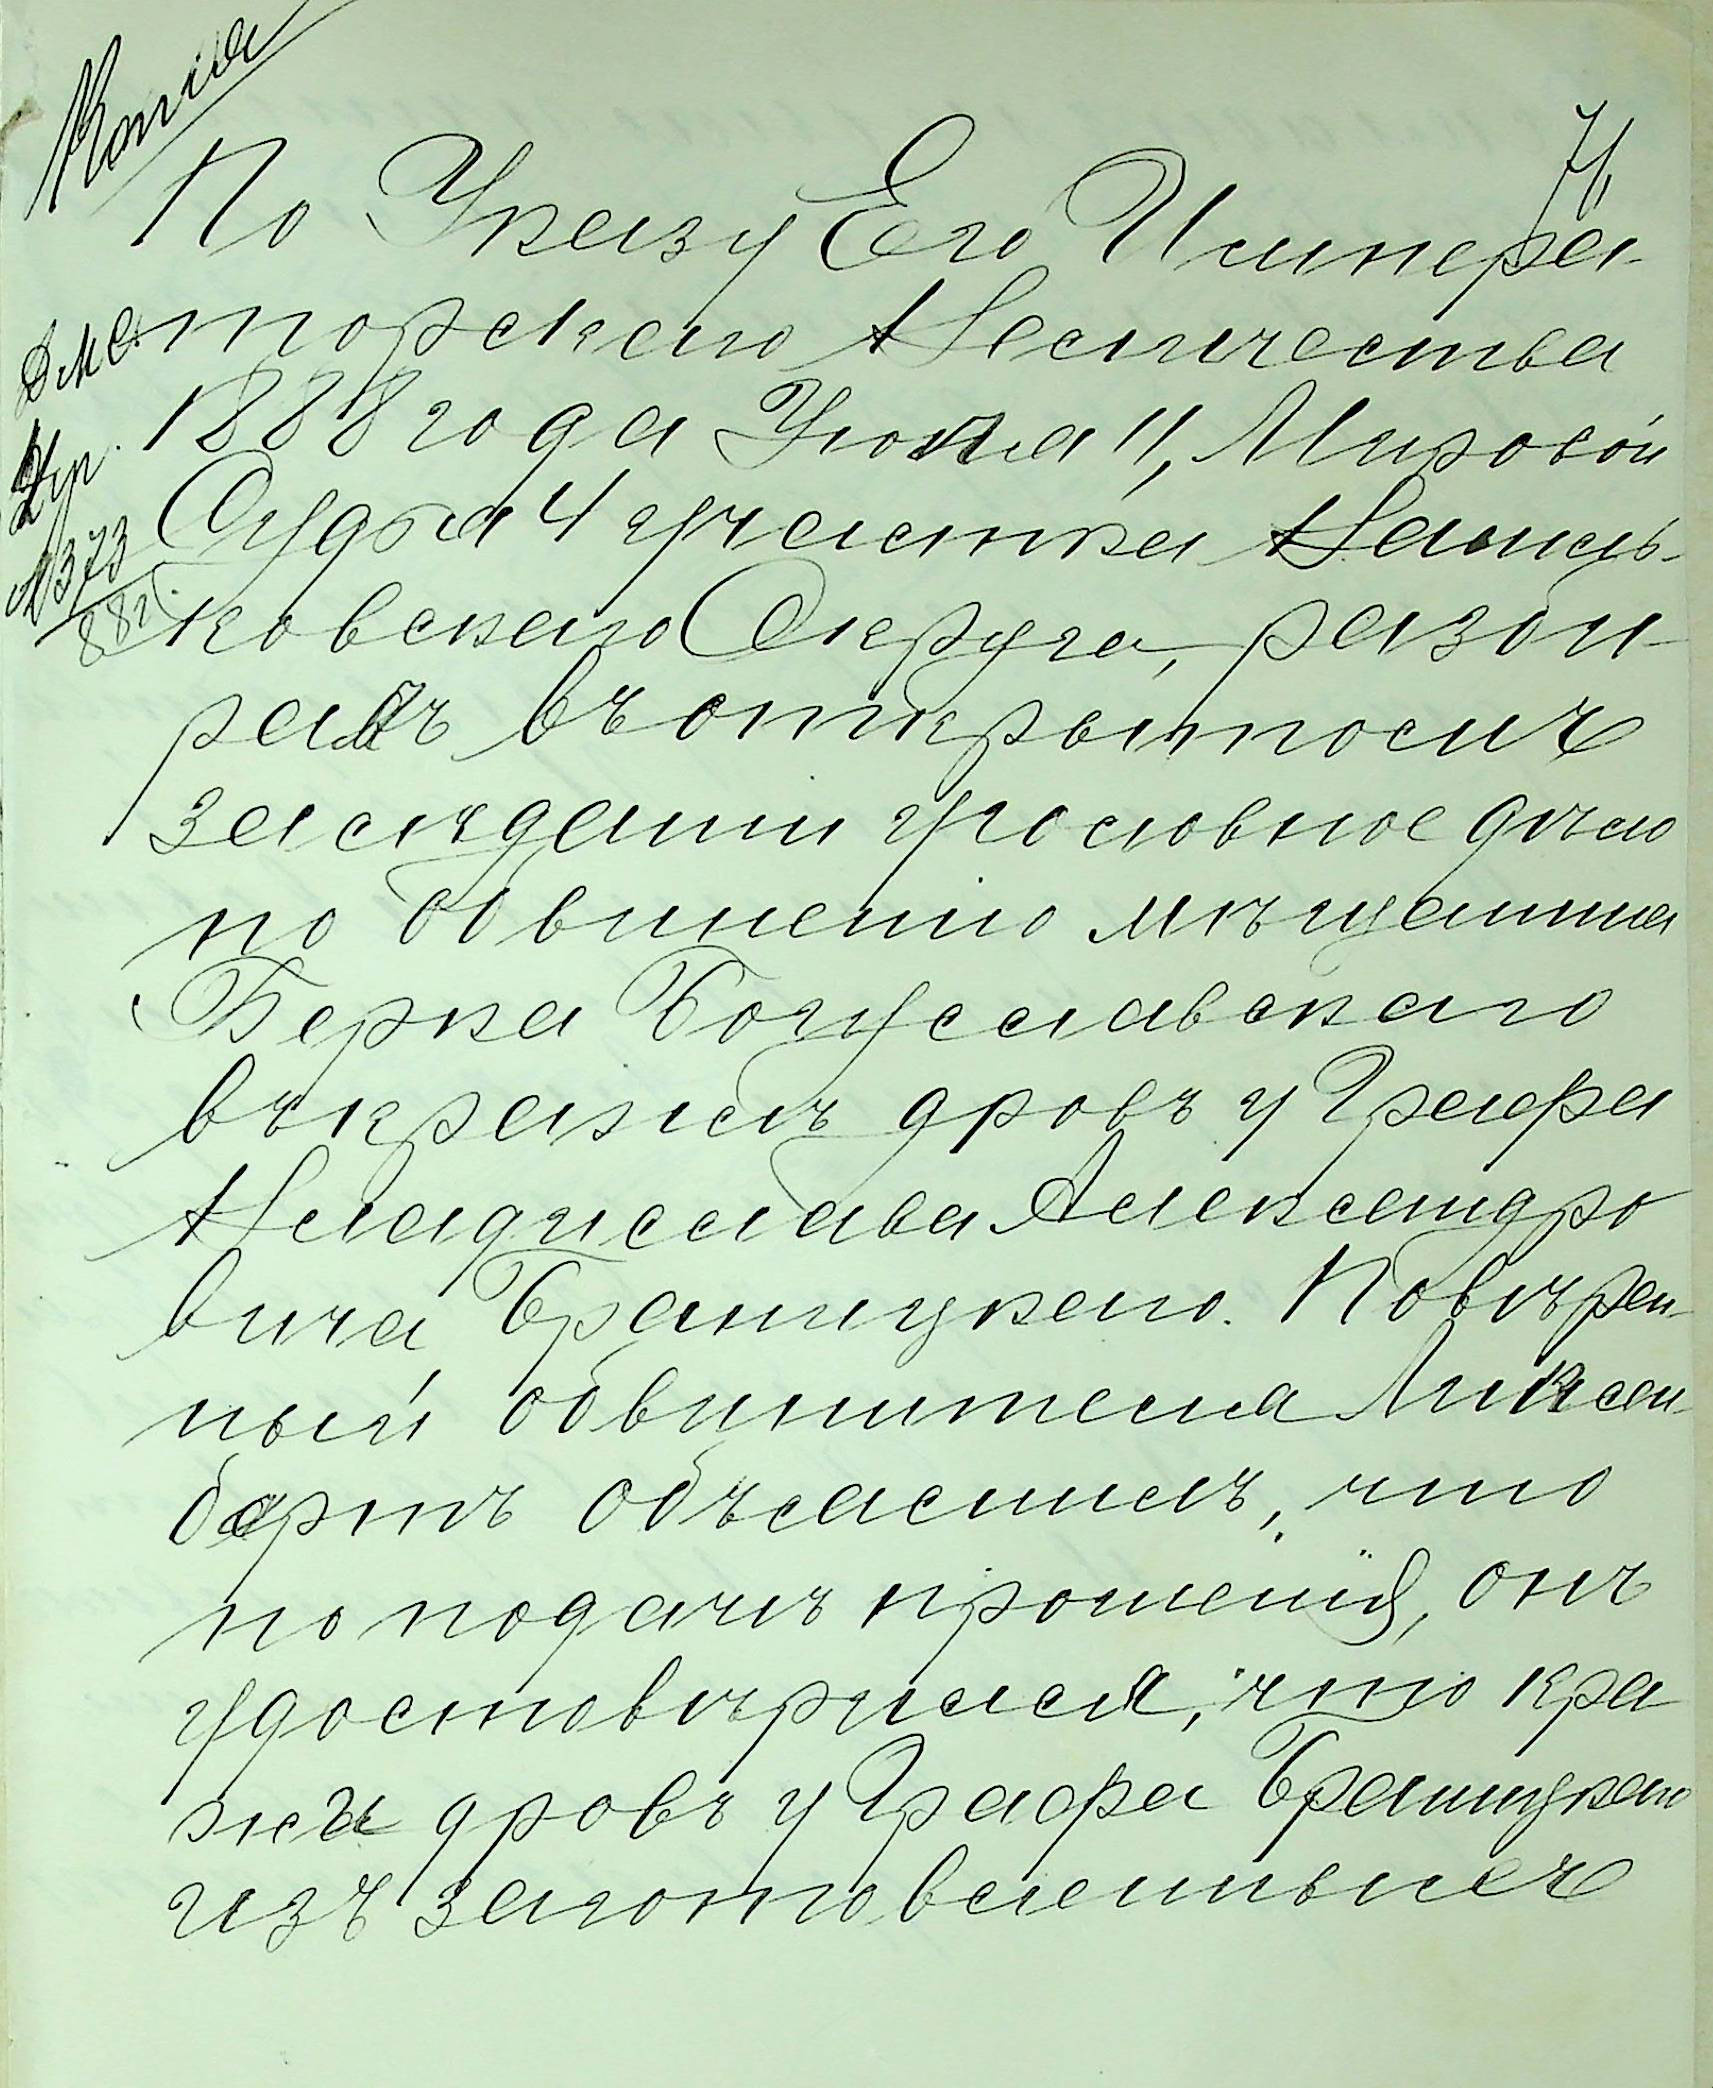 Копія
71
По Указу Его Импера-
торскаго Величества
1888 года Іюня 11, Мировой
Судья 4 участка Василь-
№ 373
88 г.
ковскаго Округа, разби-
ралъ въ открытомъ
засѣданіи уголовное дѣло
по обвиненію мѣщанина
Берка Богуславскаго
въ кражѣ дровъ у Графа
Владислава Александро
вича Браницкаго. Повѣрен-
ный обвинителя
объяснилъ, что
по подачѣ прошенія, онъ
удостовѣрился, что кра
жа дровъ у Графа Браницкаго
изъ заготовленныхъ